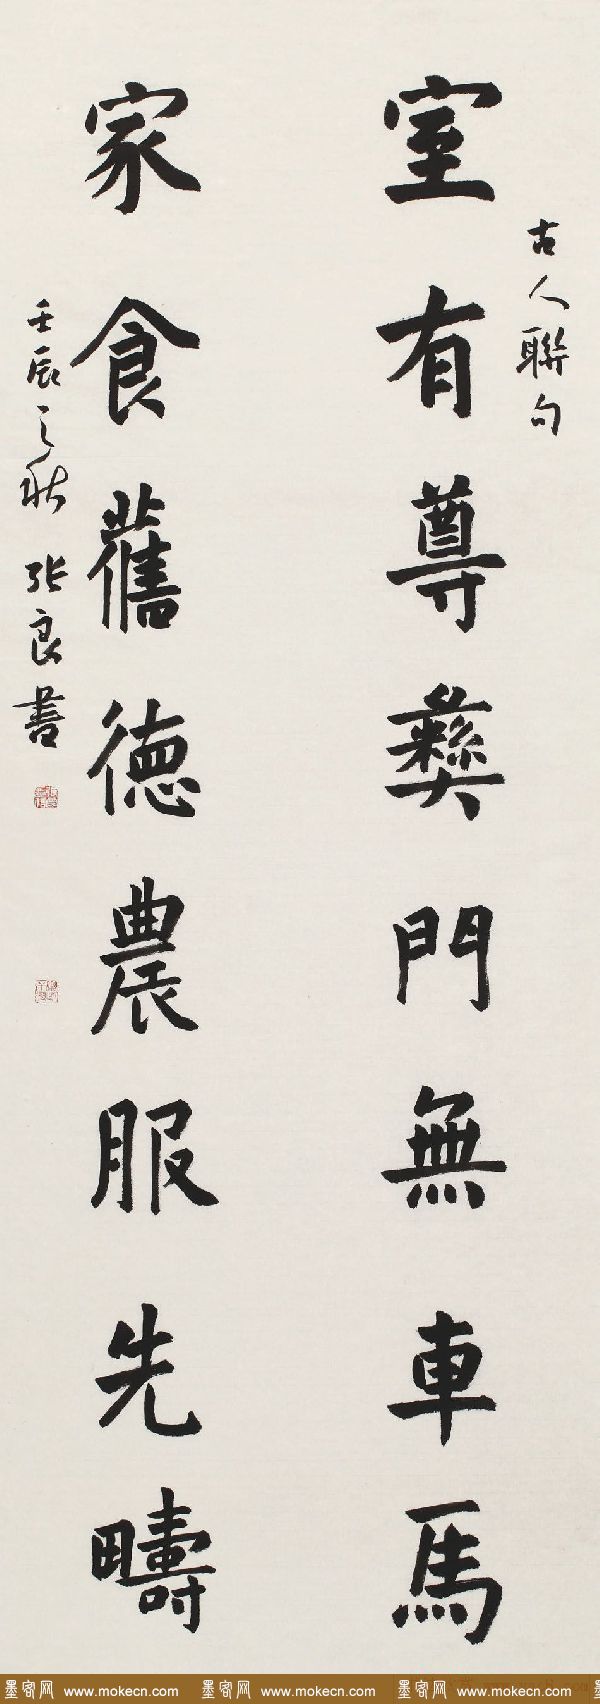 古人聯句
室有尊彝門無車馬
家食舊德農服先疇
壬辰之秋 張良書
墨客网 www.mokecn.com 墨客网 www.mokecn.com 墨客网 www.mokecn.com